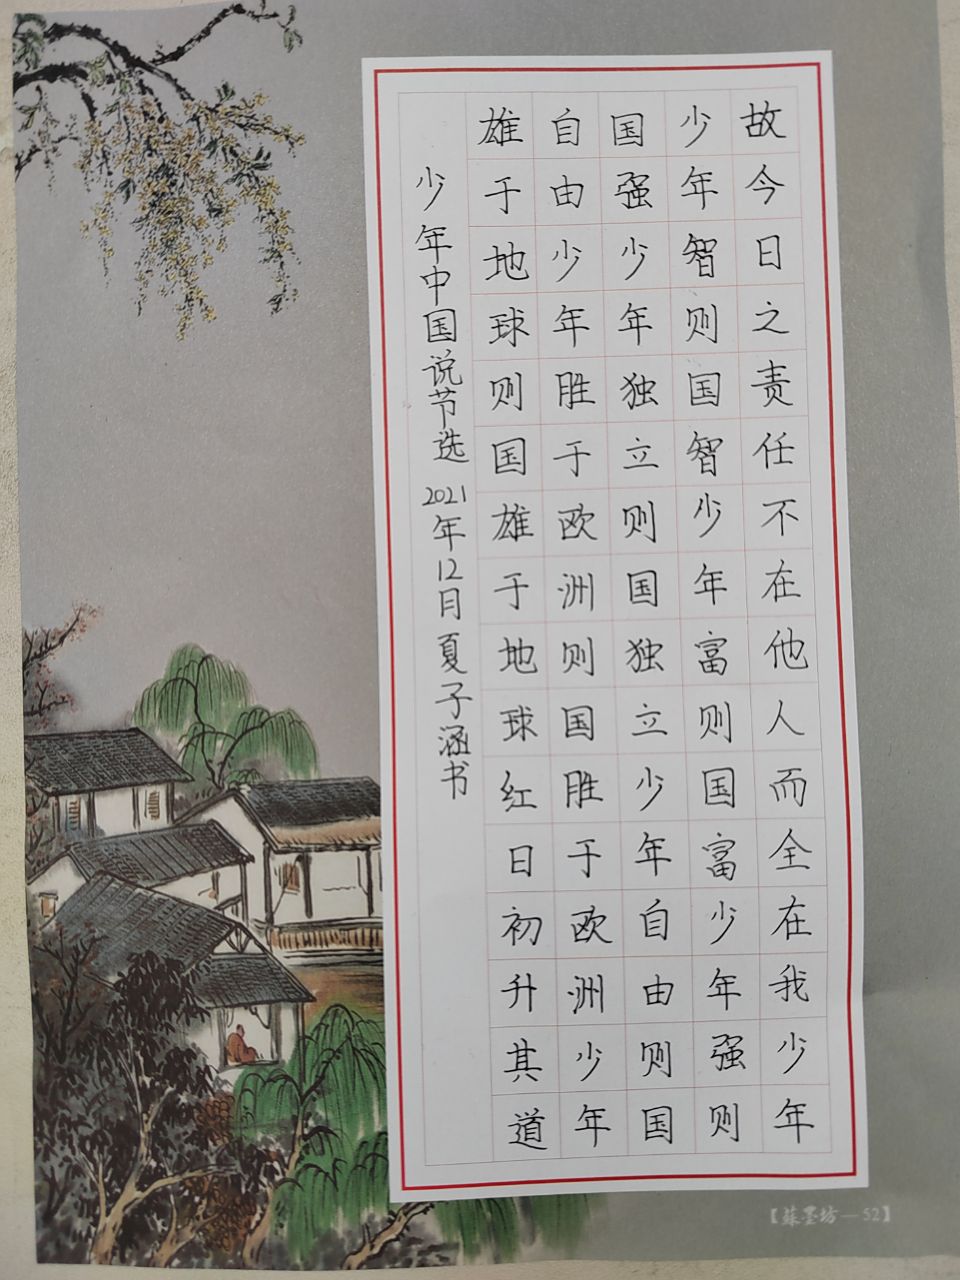 故今日之责任不在他人而全在我少年
少年智则国智少年富则国富少年强则
国强少年独立则国独立少年自由则国
自由少年胜于欧洲则国胜于欧洲少年
雄于地球则国雄于地球红日初升其道
少年中国说节选 2021年12月 夏子涵书
【蘇墨坊—52】